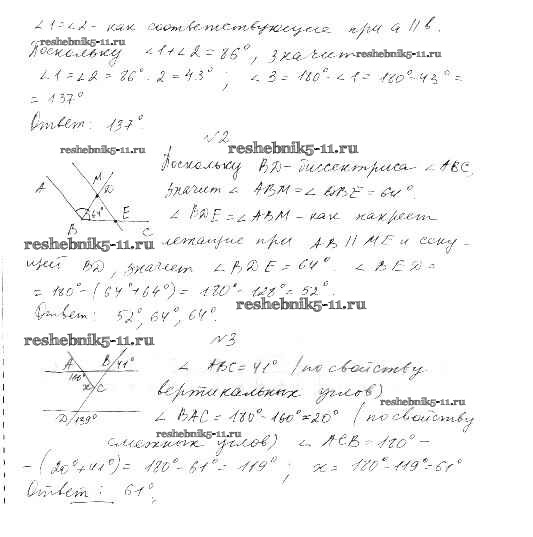 ∠1=∠2 - как соответствующие при a || b.
reshebnik5-11.ru
Поскольку ∠1+∠2=86°, значит
reshebnik5-11.ru
∠1=∠2=86°:2=43°; ∠3=180°-∠1=180°-43°=
=137°
Ответ: 137°.
№2
reshebnik5-11.ru
reshebnik5-11.ru
Поскольку BD - биссектриса ∠ABC,
A M D 64° E B C
значит ∠ABM=∠DBE=64°.
∠BDE=∠ABM - как накрест
reshebnik5-11.ru
лежащие при AB || ME и секу-
щей BD, значит ∠BDE=64°. ∠BED=
=180°-(64°+64°)=180°-128°=52°.
reshebnik5-11.ru
Ответ: 52°, 64°, 64°.
№3
reshebnik5-11.ru
A B 41° 160° x C D 139°
∠ABC=41° (по свойству
вертикальных углов)
reshebnik5-11.ru
∠BAC=180°-160°=20° (по свойству
reshebnik5-11.ru
смежных углов) ∠ACB=180°-
-(20°+41°)=180°-61°=119°; x=180°-119°=61°
Ответ: 61°.